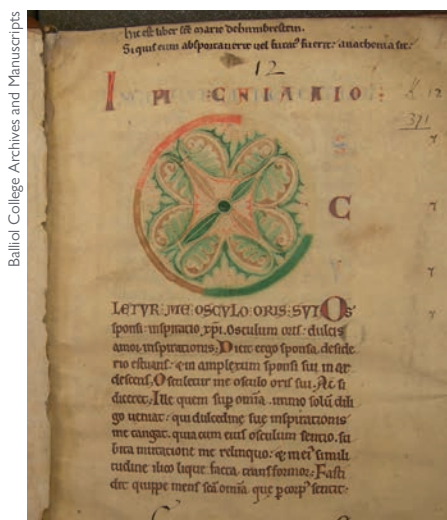 Balliol College Archives and Manuscripts
hic est liber sce marie de
Si quis eum absportaverit vel furatus fuerit: anathema sit:
12
I
371
C
LETVR ME OSCVLO ORIS SVI Os
sponsi inspiracio xpi. Osculum oris: dulcis
amor inspirationis. Dicit ergo sponsa. deside
rio estuans: & in amplexum sponsi sui in ar
descens. Osculetur me osculo oris sui. Ac si
diceret: Ille quem sup omnia. immo solum dili
go veniat: qui dulcedine sue inspirationis
me tangat. quia cum eius osculum sentio. su
bita mutacione me relinquo: & in ei simili
tudine ilico liquefacta transformor. Fasti
dit quippe mens sca omnia. que p corp sentit: